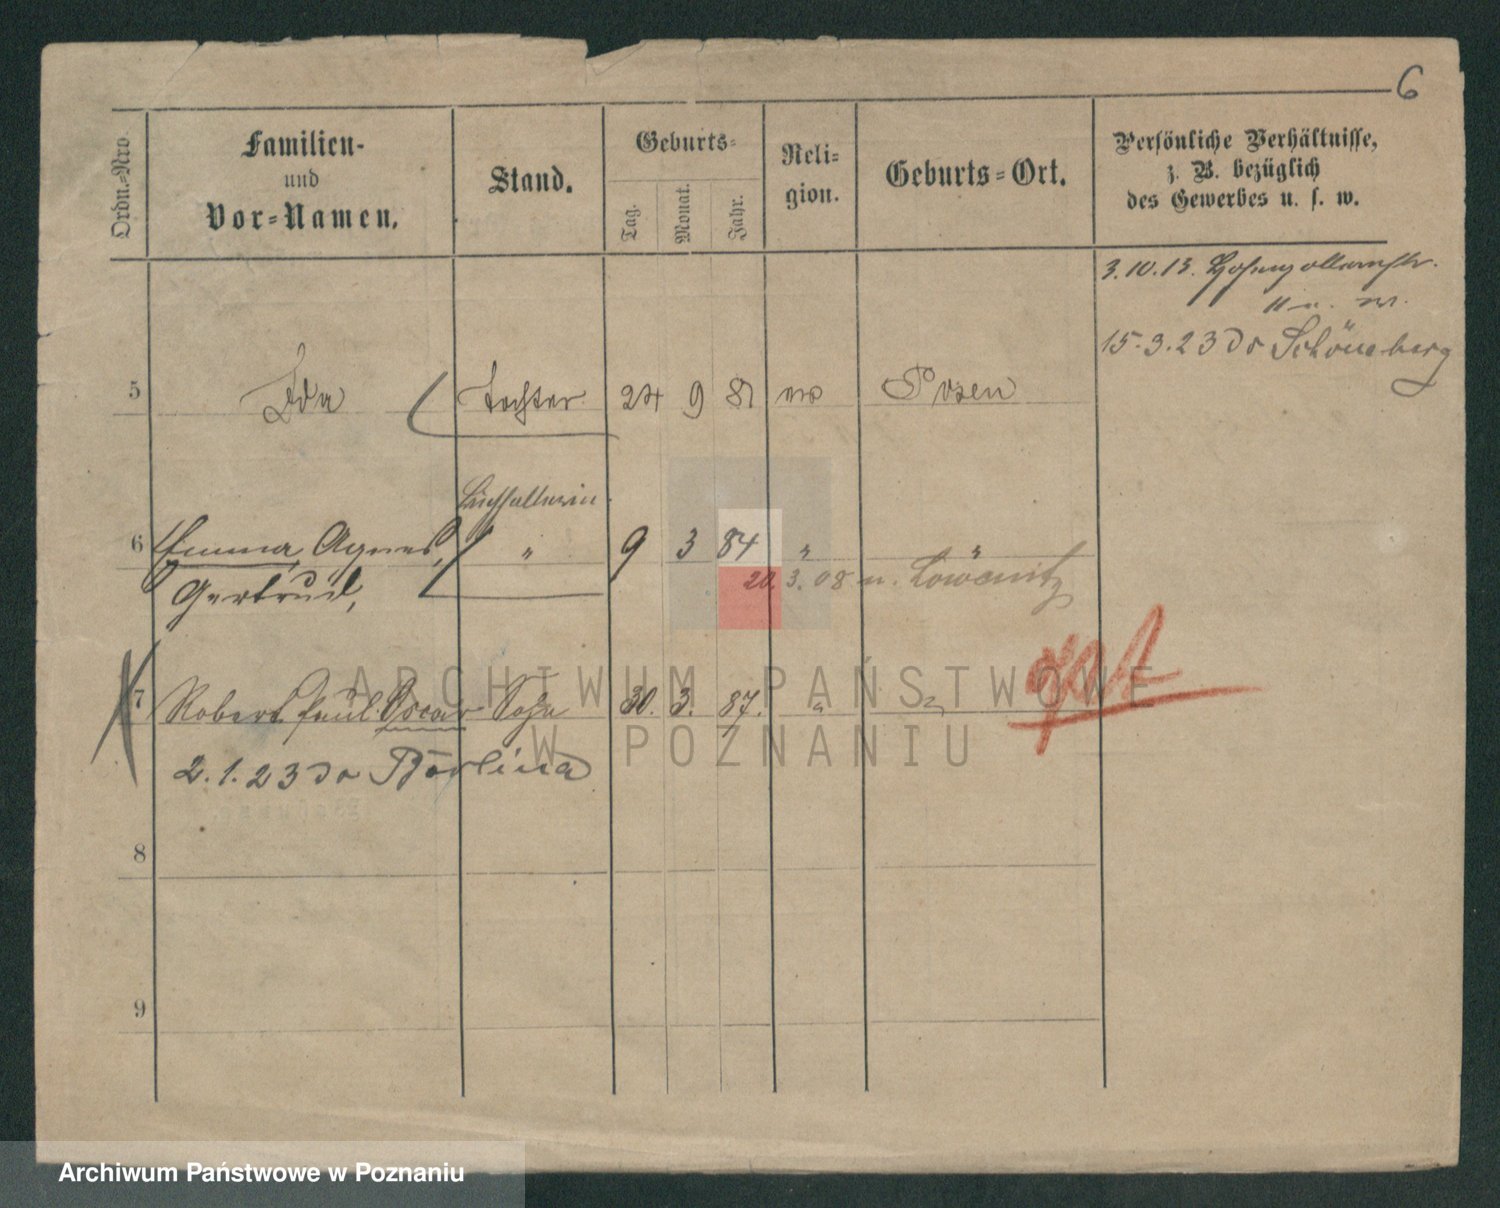 6
Ordn.-Nro.
Familien-
und
Vor-Namen.
Stand.
Geburts-
Tag.
Monat.
Jahr.
Reli-
gion.
Geburts-Ort.
Persönliche Verhältnisse,
z. B. bezüglich
des Gewerbes u. s. w.
3.10.13. Hohenzollernstr.
15.3.23 do Schöneberg
5 Ida Tochter 24 9 81 Posen
Buchhalterin
6 Emma, Agnes, " 9 3 84 " "
Gertrud,
20.3.08 n. Löwenitz
7 Robert Paul Oscar Sohn 30. 3. 87. " "
2.1.23 do Berlina
8
9
ARCHIWUM PAŃSTWOWE
W POZNANIU
Archiwum Państwowe w Poznaniu